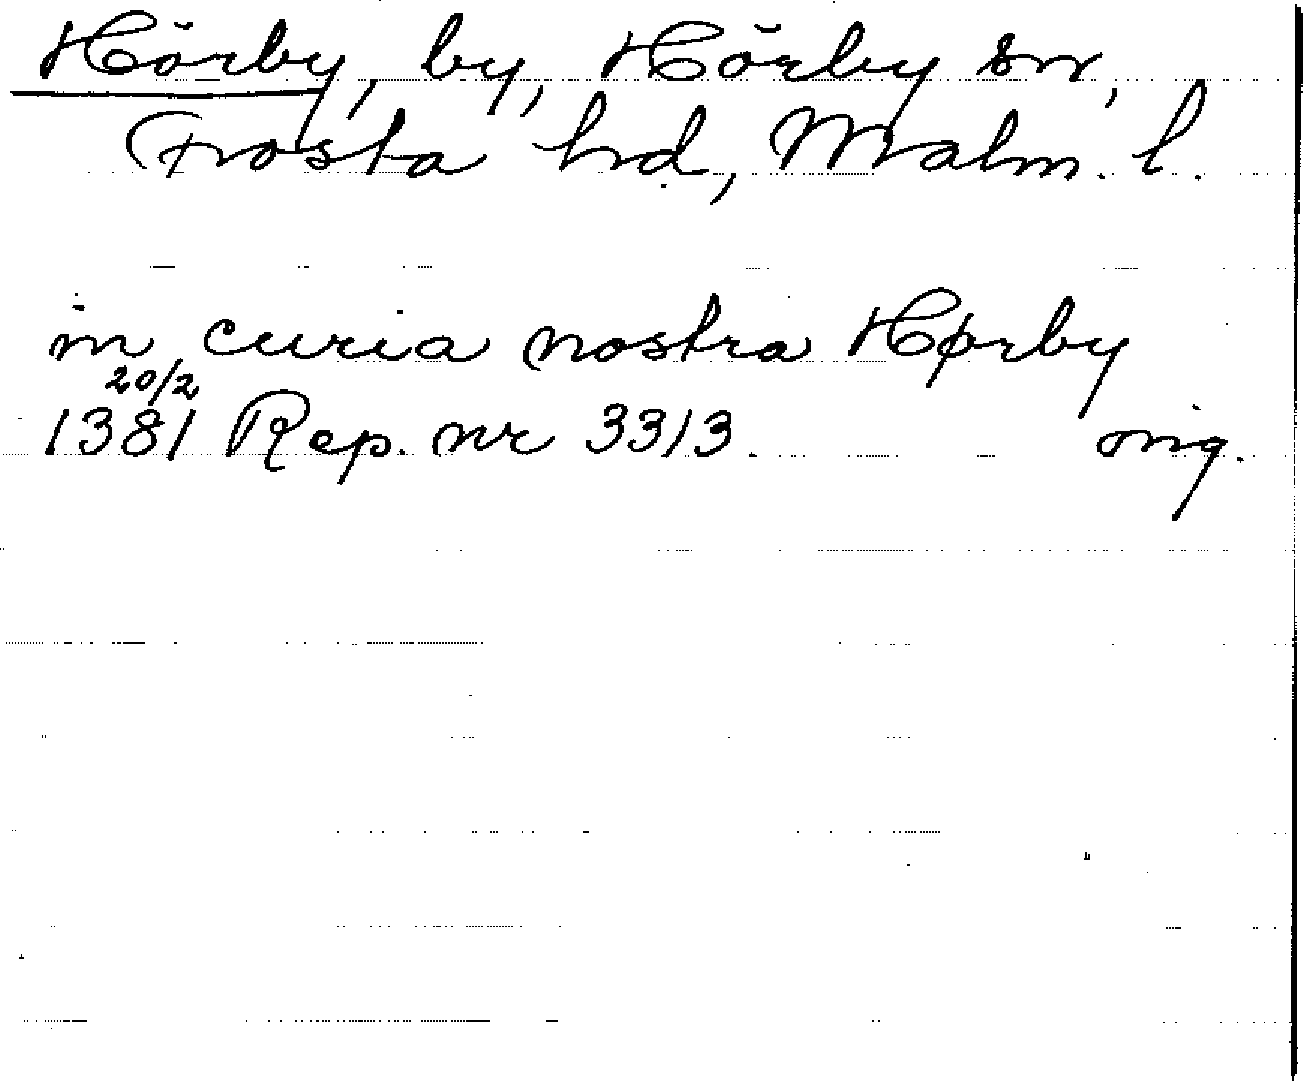 Hörby, by, Hörby sn,
Frosta hd, Malm. l.
in curia nostra Hørby
20/2
1381 Rep. nr 3313. orig.